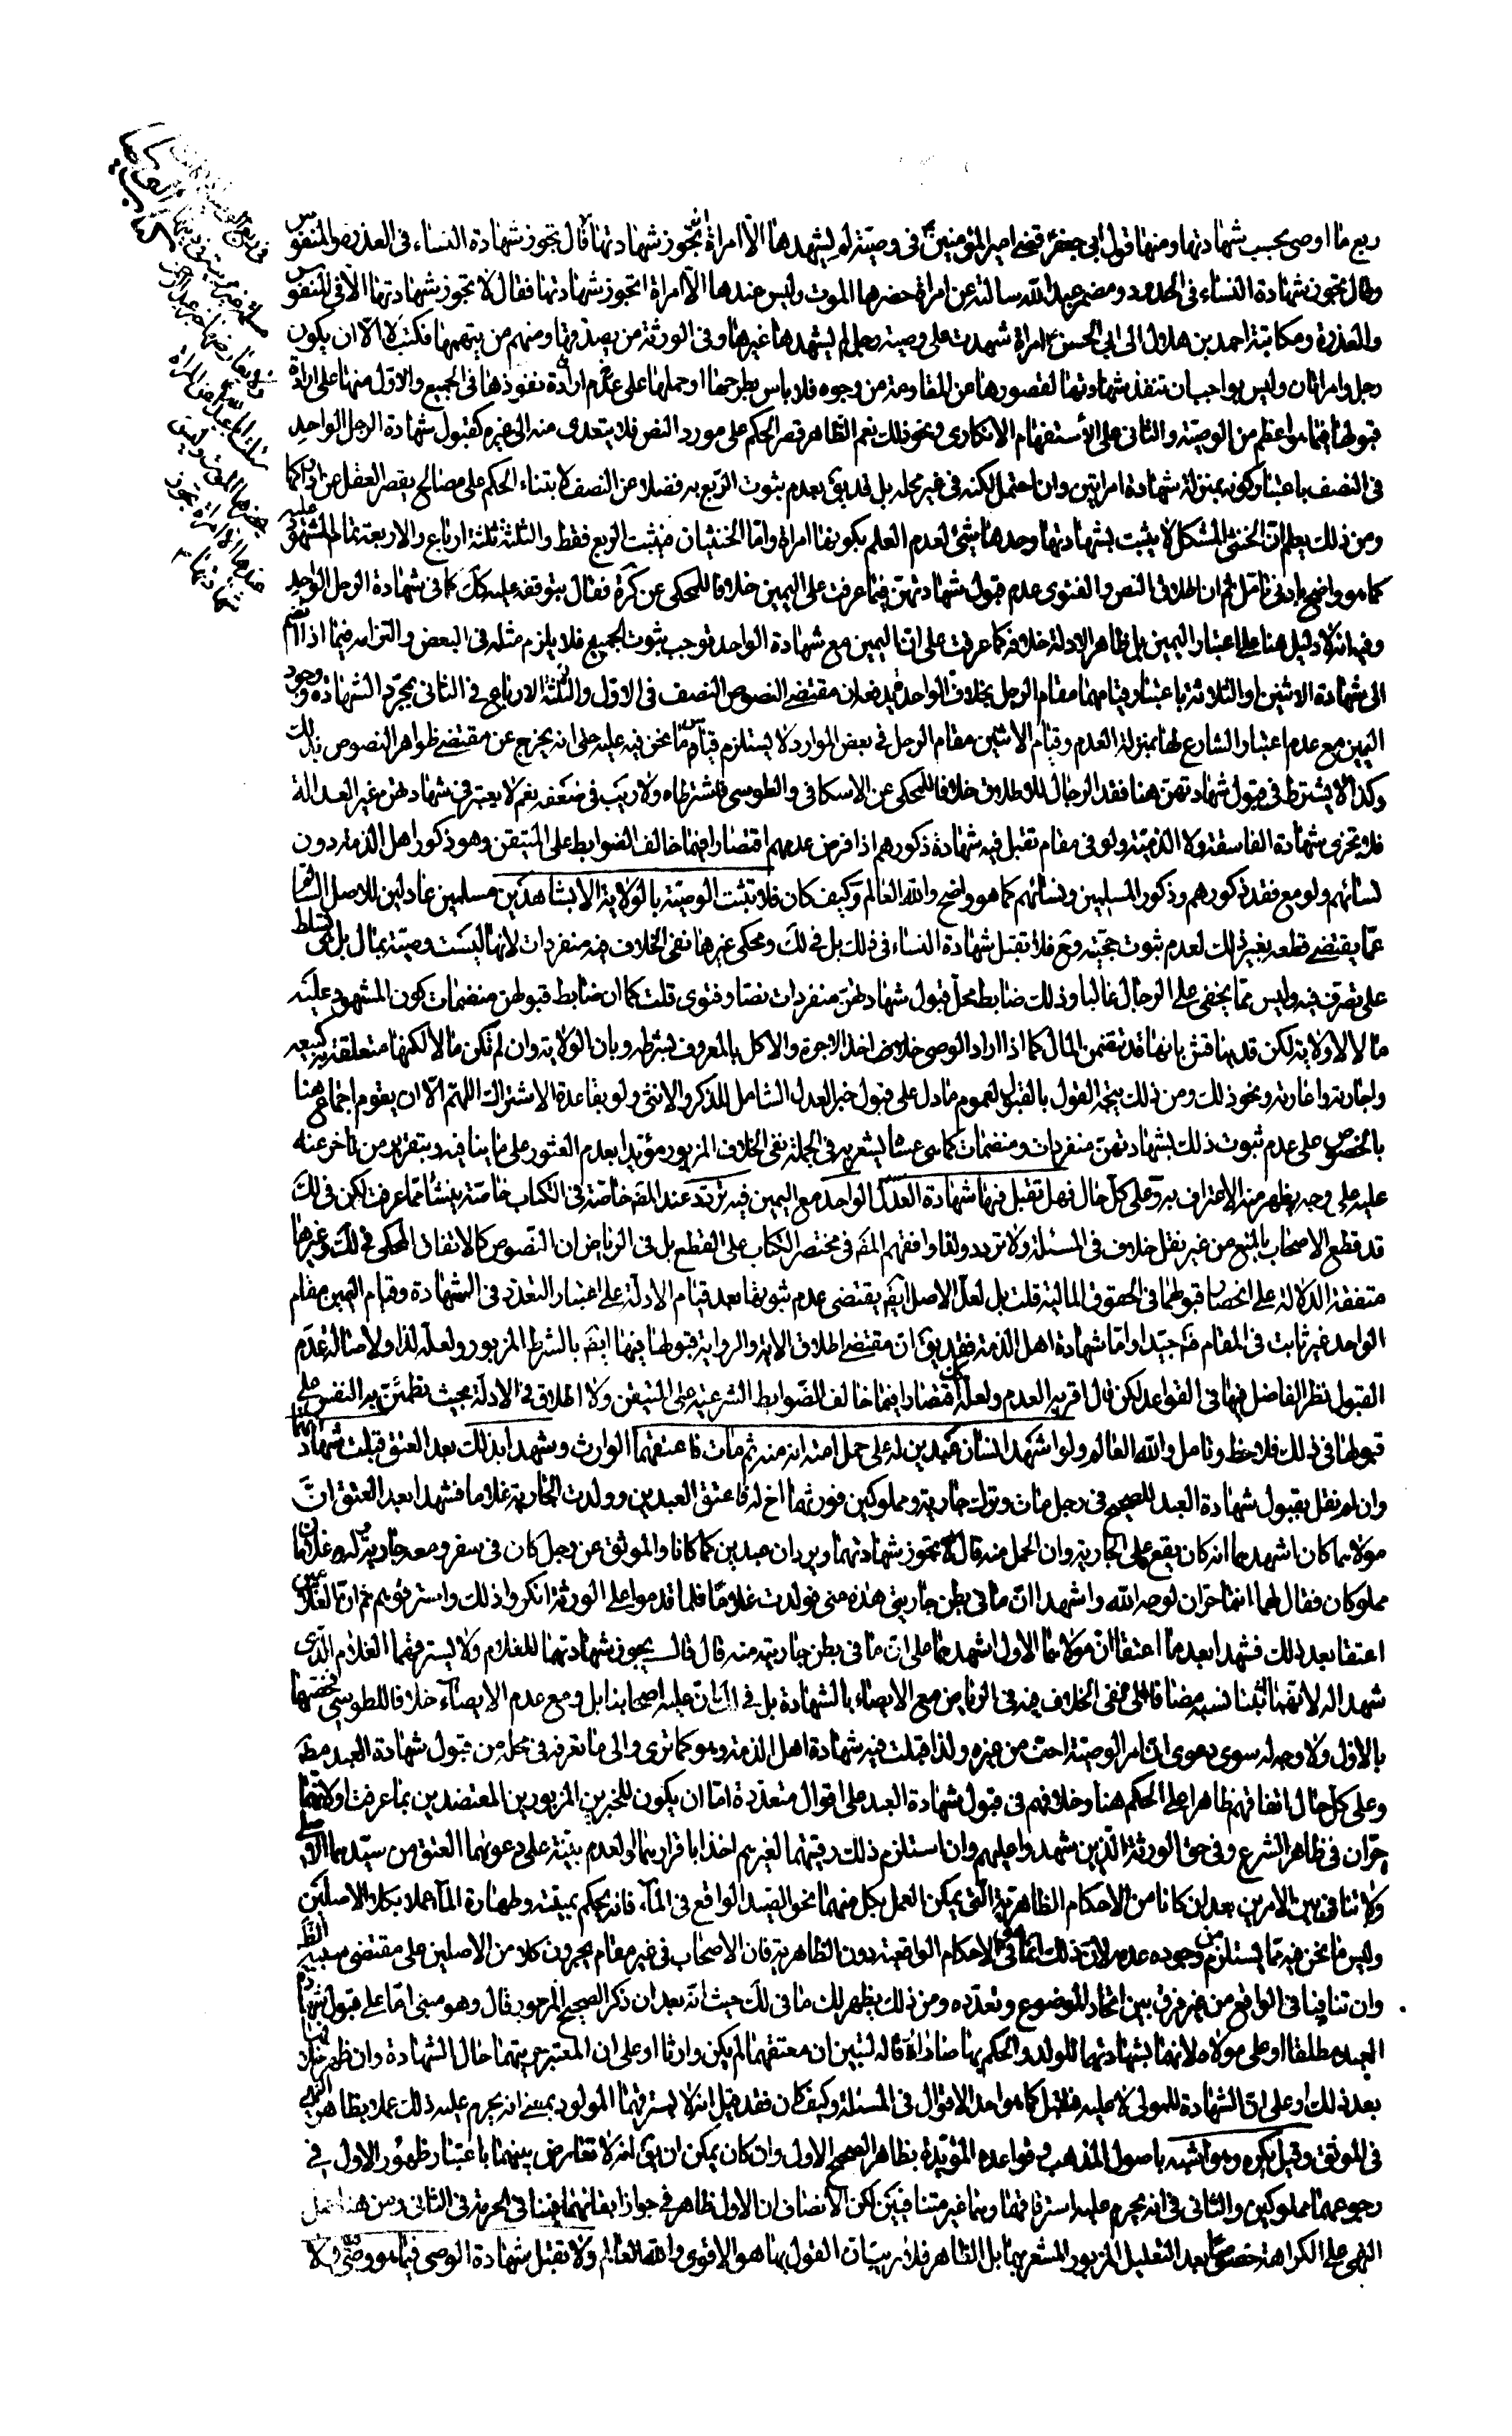 ربع ما اوصى بحسب شهادتها ومنها قول ابي جعفر قضى امير المؤمنين في وصية لم يشهدها الا امراة اتجوز شهادتها قال تجوز شهادة النساء في العذرة والمنفوس
وقال تجوز شهادة النساء في الحدود ومضمر عبد الله سالته عن امراة حضرها الموت وليس عندها الا امراة اتجوز شهادتها فقال لا تجوز شهادتها الا في المنفوس
والعذرة ومكاتبة احمد بن هلال الى ابي الحسن امراة شهدت على وصية رجل لم يشهدها غيرها وفي الورثة من يصدقها ومنهم من يتهمها فكتب لا الا ان يكون
رجل وامراتان وليس بواجب ان تنفذ شهادتها لقصورها عن المقاومة من وجوه فلا باس بطرحها او حملها على عدم ارادة نفوذها في الجميع والاول منها على ارادة
قبولها فيما هو اعظم من الوصية والثاني على الاستفهام الانكاري ونحو ذلك نعم الظاهر قصر الحكم على مورد النص فلا يتعدى منه الى غيره كقبول شهادة الرجل الواحد
في النصف باعتبار كونه بمنزلة شهادة امراتين وان احتمل لكنه في غير محله بل قد يق بعدم ثبوت الربع به فضلا عن النصف لابتناء الحكم على مصالح يقصر العقل عن ادراكها
ومن ذلك يعلم ان الخنثى المشكل لا يثبت بشهادتها وحدها شئ لعدم العلم بكونها امراة واما الخنثيان فيثبت الربع فقط والثلثة ثلثة ارباع والاربعة تمام المشهود عليه
كما هو واضح بادنى تامل ثم ان اطلاق النص والفتوى عدم قبول شهادتهن فيما عرفت على اليمين خلافا للمحكي عن كرة فقال بتوقفه عليه كك كما في شهادة الرجل الواحد
وفيه انه لا دليل هنا على اعتبار اليمين بل ظاهر الادلة خلافه كما عرفت على ان اليمين مع شهادة الواحد توجب ثبوت الجميع فلا يلزم مثله في البعض والتزامه فيما اذا انضم
الى شهادة الاثنين او الثلاثة باعتبار قيامهما مقام الرجل بخلاف الواحدة يدفعه ان مقتضى النصوص النصف في الاول والثلثة الارباع في الثاني بمجرد الشهادة ووجود
اليمين مع عدم اعتبار الشارع لها بمنزلة العدم وقيام الاثنين مقام الرجل في بعض الموارد لا يستلزم قياس ما نحن فيه عليه على انه يخرج عن مقتضى ظواهر النصوص بذلك
وكذا لا يشترط في قبول شهادتهن هنا فقد الرجال للاطلاق خلافا للمحكي عن الاسكافي والطوسي فاشترطاه ولا ريب في ضعفه نعم لا يعتبر في شهادتهن غير العدالة
فلا تجزى شهادة الفاسقة ولا الذمية ولو في مقام تقبل فيه شهادة ذكورهم اذا فرض عدمهم اقتصارا فيما خالف الضوابط على المتيقن وهو ذكور اهل الذمة دون
نسائهم ولو مع فقد ذكورهم وذكور المسلمين ونسائهم كما هو واضح والله العالم وكيف كان فلا تثبت الوصية بالولاية الا بشاهدين مسلمين عادلين للاصل السالم
عما يقتضى قطعه بغير ذلك لعدم ثبوت حجيته وح فلا تقبل شهادة النساء في ذلك بل في لك ومحكي غيرها نفى الخلاف فيه منفردات لانها ليست وصية بمال بل هي تسلط
على تصرف فيه وليس مما يخفى على الرجال غالبا وذلك ضابط محل قبول شهادتهن منفردات نصا وفتوى قلت كما ان ضابط قبولهن منضمات كون المشهود عليه
مالا لا ولاية لكن قد يناقش بانها قد تتضمن المال كما اذا اراد الوصي اخذ الاجرة والاكل بالمعروف بشرطه وبان الولاية وان لم تكن مالا لكنها متعلقة به كبيعه
واجارته واعارته ونحو ذلك ومن ذلك يتجه القول بالقبول لعموم ما دل على قبول خبر العدل الشامل للذكر والانثى ولو بقاعدة الاشتراك اللهم الا ان يقوم اجماع هنا
بالخصوص على عدم ثبوت ذلك بشهادتهن منفردات ومنضمات كما عساه يشعر به في الجملة نفى الخلاف المزبور مؤيدا بعدم العثور على ما ينافيه وبتقرير من تاخر عنه
عليه على وجه يظهر منه الاعتراف به وعلى كل حال فهل تقبل فيها شهادة العدل الواحد مع اليمين فيه تردد عند المص خاصة في الكتاب خاصة ينشا مما عرفت لكن في لك
قد قطع الاصحاب بالمنع من غير نقل خلاف في المسئلة ولا تردد ولقد وافقهم المص في مختصر الكتاب على القطع بل في الرياض ان النصوص كالاتفاق المحكي في لك وغيرها
متفقة الدلالة على انحصار قبولهما في الحقوق المالية قلت بل لعل الاصل ايضا يقتضى عدم ثبوتها بعد قيام الادلة على اعتبار التعدد في الشهادة وقيام اليمين مقام
الواحد غير ثابت في المقام فت جيدا واما شهادة اهل الذمة فقد يق ان مقتضى اطلاق الاية والرواية قبولها فيها ايضا بالشرط المزبور ولعله لذا ولاصالة عدم
القبول نظر الفاضل فيها في القواعد لكن قال اقربه العدم ولعله كان اقتصارا فيما خالف الضوابط الشرعية على المتيقن ولا اطلاق في الادلة بحيث تطمئن به النفس على
قبولها في ذلك فلاحظ وتامل والله العالم ولو اشهد انسان عبدين له على حمل امته انه منه ثم مات فاعتقهما الوارث وشهدا بذلك بعد العتق قبلت شهادتهما
وان لم نقل بقبول شهادة العبد للصحيح في رجل مات وترك جارية ومملوكين فورثهما اخ له فاعتق العبدين وولدت الجارية غلاما فشهدا بعد العتق ان
مولاهما كان اشهدهما انه كان يقع على الجارية وان الحمل منه قال تجوز شهادتهما ويردان عبدين كما كانا والموثق عن رجل كان في سفر ومعه جارية له وغلامان
مملوكان فقال لهما انتما حران لوجه الله واشهدا ان ما في بطن جاريتي هذه مني فولدت غلاما فلما قدموا على الورثة انكروا ذلك واسترقوهم ثم ان الغلامين
اعتقا بعد ذلك فشهدا بعد ما اعتقا ان مولاهما الاول اشهدهما على ان ما في بطن جاريته منه قال قال يجوز شهادتهما للغلام ولا يسترقهما الغلام الذي
شهدا له لانهما اثبتا نسبه مضافا الى نفى الخلاف فيه في الرياض مع الايصاء بالشهادة بل في ان عليه اصحابنا بل ومع عدم الايصاء خلافا للطوسي فخصها
بالاول ولا وجه له سوى دعوى ان امر الوصية اخف من غيره ولذا قبلت فيه شهادة اهل الذمة وهو كما ترى والى ما تعرفه في محله من قبول شهادة العبد مط
وعلى كل حال اتفاقهم ظاهرا على الحكم هنا وخلافهم في قبول شهادة العبد على اقوال متعددة اما ان يكون للخبرين المزبورين المعتضدين بما عرفت او لانهما
حران في ظاهر الشرع وفي حق الورثة الذين شهدوا عليهم وان استلزم ذلك رقيتهما لغيرهم اخذا باقرارهما ولعدم بينة على دعويهما العتق من سيدهما
ولا تنافي بين الامرين بعد ان كانا من الاحكام الظاهرية التي يمكن العمل بكل منهما نحو الصيد الواقع في الماء فانه يحكم بميتته وطهارة الماء عملا بكلا الاصلين
وليس ما نحن فيه مما يستلزم من وجوده عدمه لان ذلك انما هو في الاحكام الواقعية دون الظاهرية فان الاصحاب في غير مقام يجرون كلا من الاصلين على مقتضى
وان تنافيا في الواقع من غير فرق بين اتحاد الموضوع وتعدده ومن ذلك يظهر لك ما في لك حيث انه بعد ان ذكر الصحيح المزبور قال وهو مبنى اما على قبول شهادة
العبد مطلقا او على مولاه لانهما بشهادتهما للولد والحكم بها صارا له لتبين ان معتقهما لم يكن وارثا او على ان المعتبر حريتهما حال الشهادة وان ظهر خلافها
بعد ذلك او على ان الشهادة للمولى لا عليه فتقبل كما هو احد الاقوال في المسئلة وكيف كان فقد قيل انه لا يسترقهما المولود بمعنى انه يحرم عليه ذلك عملا بظاهر النهي
في الموثق وقيل يكره وهو اشبه باصول المذهب وقواعده المؤيدة بظاهر الصحيح الاول وان كان يمكن ان يق انه لا تعارض بينهما باعتبار ظهور الاول في
رجوعهما مملوكين والثاني في انه يحرم عليه استرقاقهما وهما غير متنافيين لكن الانصاف ان الاول ظاهر في جواز ابقائهما فينافي الحرمة في الثاني ومن هنا حمل
النهي على الكراهة خصوصا بعد التعليل المزبور المشعر بها بل الظاهر فلا ريب ان القول بها هو الاقوى والله العالم ولا تقبل شهادة الوصي فيما هو وصى فيه ولا